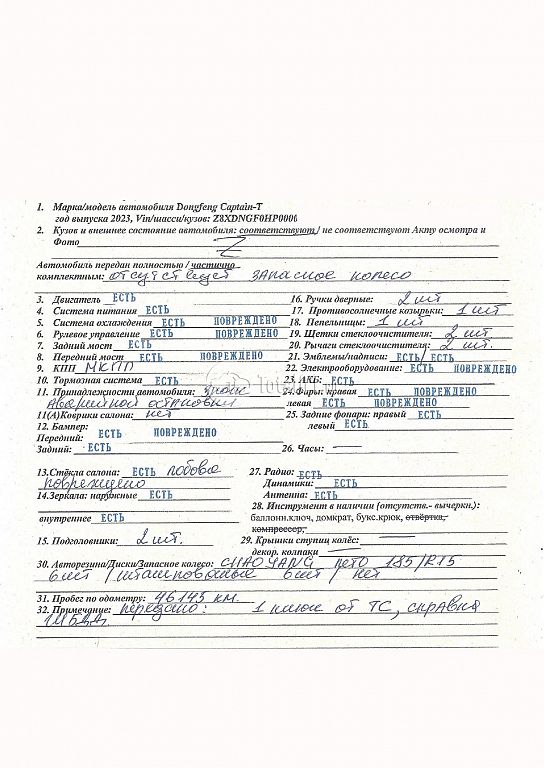 1. Марка/модель автомобиля Dongfeng Captain-T
год выпуска 2023, Vin/шасси/кузов: Z8XDNGF0HP0000
2. Кузов и внешнее состояние автомобиля: соответствуют / не соответствуют Акту осмотра и
Фото
Автомобиль передан полностью / частично
комплектным: отсутствует запасное колесо
3. Двигатель ЕСТЬ
4. Система питания ЕСТЬ
5. Система охлаждения ЕСТЬ ПОВРЕЖДЕНО
6. Рулевое управление ЕСТЬ ПОВРЕЖДЕНО
7. Задний мост ЕСТЬ
8. Передний мост ЕСТЬ ПОВРЕЖДЕНО
9. КПП МКПП
10. Тормозная система ЕСТЬ
11. Принадлежности автомобиля: знак
аварийной остановки
11(А)Коврики салона: нет
12. Бампер:
Передний: ЕСТЬ ПОВРЕЖДЕНО
Задний: ЕСТЬ
13.Стёкла салона: ЕСТЬ лобовое
повреждено
14.Зеркала: наружные ЕСТЬ
внутреннее ЕСТЬ
15. Подголовники: 2 шт.
16. Ручки дверные: 2 шт
17. Противосолнечные козырьки: 1 шт
18. Пепельницы: 1 шт
19. Щетки стеклоочистителя: 2 шт
20. Рычаги стеклоочистителя: 2 шт.
21. Эмблемы/надписи: ЕСТЬ/ ЕСТЬ
22. Электрооборудование: ЕСТЬ ПОВРЕЖДЕНО
23. АКБ: ЕСТЬ
24. Фары: правая ЕСТЬ ПОВРЕЖДЕНО
левая ЕСТЬ ПОВРЕЖДЕНО
25. Задние фонари: правый ЕСТЬ
левый ЕСТЬ
26. Часы:
27. Радио: ЕСТЬ
Динамики: ЕСТЬ
Антенна: ЕСТЬ
28. Инструмент в наличии (отсутств.- вычеркн.):
баллонн.ключ, домкрат, букс.крюк, отвёртка,
компрессор,
29. Крышки ступиц колёс:
декор. колпаки
30. Авторезина/Диски/Запасное колесо: CHAOYANG лето 185/R15
6 шт / штампованные 6 шт / нет
31. Пробег по одометру: 46143 км.
32. Примечание: передано: 1 ключ от ТС, справка